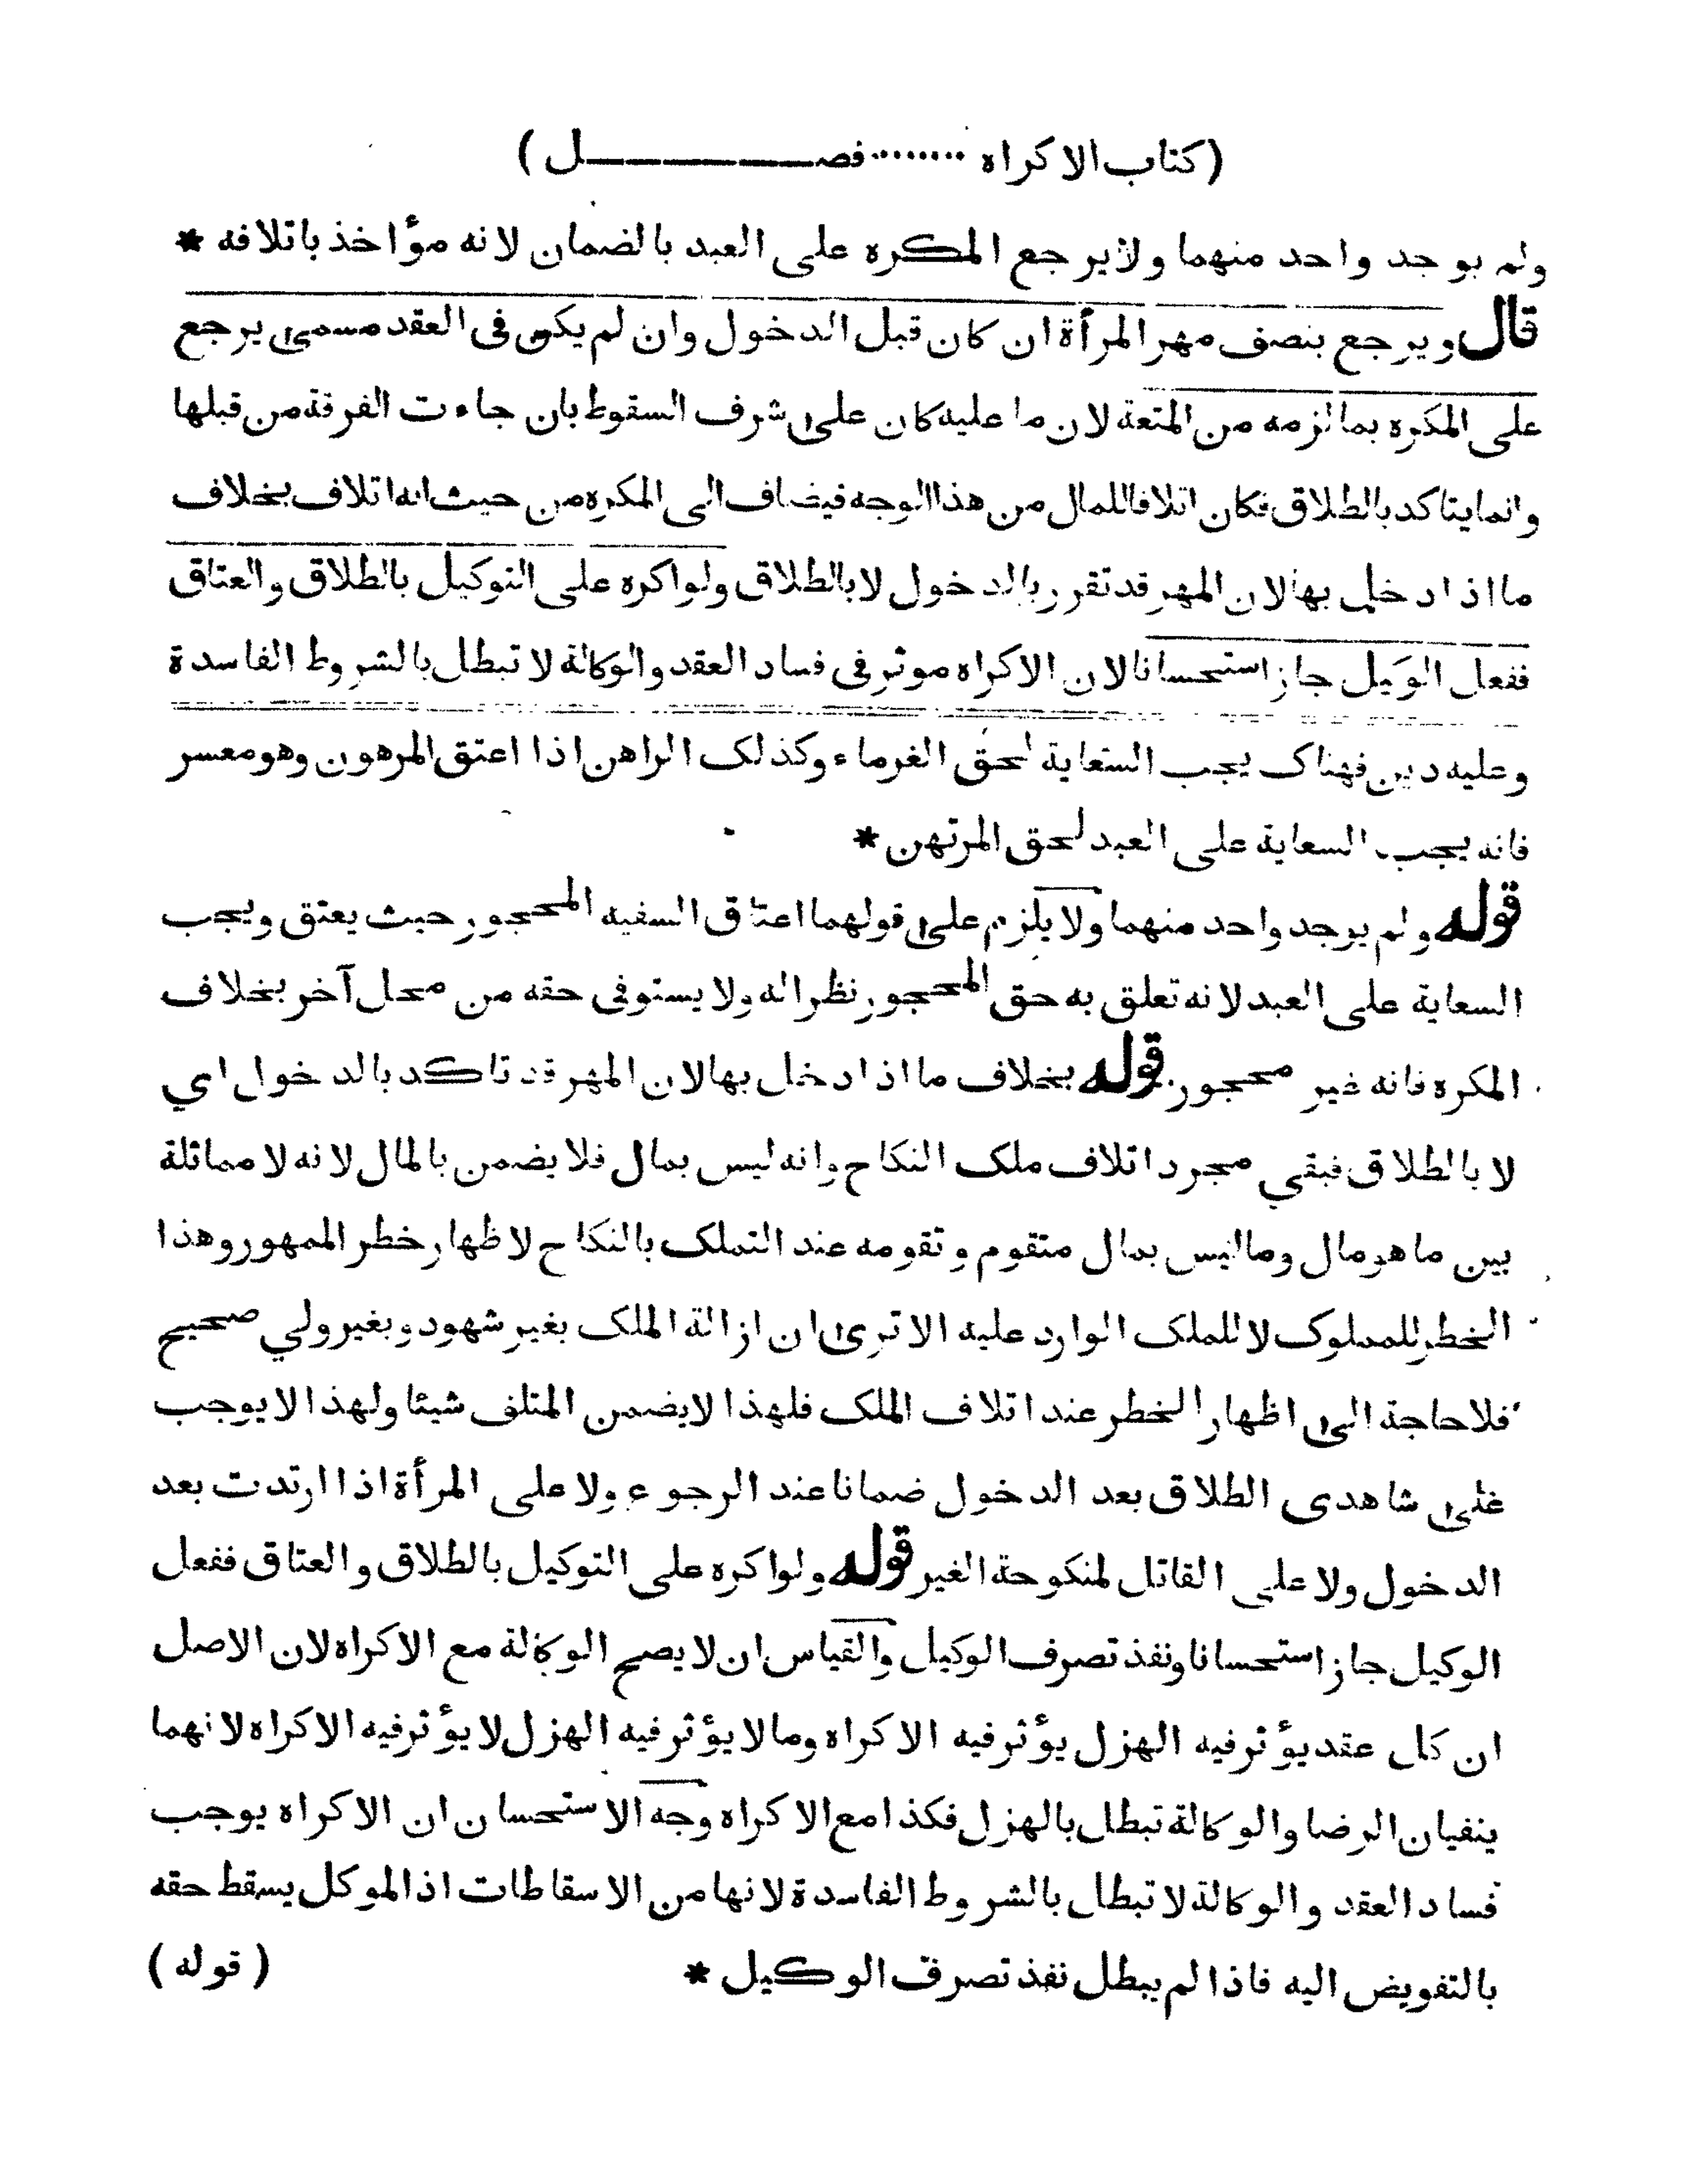 (كتاب الاكراه ........ فصـــــــــل)
ولم يوجد واحد منهما ولا يرجع المكره على العبد بالضمان لانه مؤاخذ باتلافه *
قال ويرجع بنصف مهر المرأة ان كان قبل الدخول وان لم يكن فى العقد مسمى يرجع
على المكره بما لزمه من المتعة لان ما عليه كان على شرف السقوط بان جاءت الفرقة من قبلها
وانما يتاكد بالطلاق فكان اتلافا للمال من هذا الوجه فيضاف الى المكره من حيث انه اتلاف بخلاف
ما اذا دخل بها لان المهر قد تقرر بالدخول لا بالطلاق ولو اكره على التوكيل بالطلاق والعتاق
ففعل الوكيل جاز استحسانا لان الاكراه موثر فى فساد العقد والوكالة لا تبطل بالشروط الفاسدة
وعليه دين فهناك يجب السعاية لحق الغرماء وكذلك الراهن اذا اعتق المرهون وهو معسر
فانه يجب السعاية على العبد لحق المرتهن *
قوله ولم يوجد واحد منهما ولا يلزم على قولهما اعتاق السفيه المحجور حيث يعتق ويجب
السعاية على العبد لانه تعلق به حق المحجور نظرا له ولا يستوفى حقه من محل آخر بخلاف
المكره فانه غير محجور. قوله بخلاف ما اذا دخل بها لان المهر قد تاكد بالدخول اي
لا بالطلاق فبقي مجرد اتلاف ملك النكاح وانه ليس بمال فلا يضمن بالمال لانه لا مماثلة
بين ما هو مال وما ليس بمال متقوم و تقومه عند التملك بالنكاح لاظهار خطر الممهور وهذا
الخطر للمملوك لا للملك الوارد عليه الا ترى ان ازالة الملك بغير شهود و بغير ولي صحيح
فلا حاجة الى اظهار الخطر عند اتلاف الملك فلهذا لا يضمن المتلف شيئا ولهذا لا يوجب
على شاهدى الطلاق بعد الدخول ضمانا عند الرجوع ولا على المرأة اذا ارتدت بعد
الدخول ولا على القاتل لمنكوحة الغير قوله ولو اكره على التوكيل بالطلاق والعتاق ففعل
الوكيل جاز استحسانا ونفذ تصرف الوكيل والقياس ان لا يصح الوكالة مع الاكراه لان الاصل
ان كل عقد يؤثر فيه الهزل يؤثر فيه الاكراه وما لا يؤثر فيه الهزل لا يؤثر فيه الاكراه لانهما
ينفيان الرضا والوكالة تبطل بالهزل فكذا مع الاكراه وجه الاستحسان ان الاكراه يوجب
فساد العقد والوكالة لا تبطل بالشروط الفاسدة لانها من الاسقاطات اذ الموكل يسقط حقه
بالتفويض اليه فاذا لم يبطل نفذ تصرف الوكيل * (قوله)